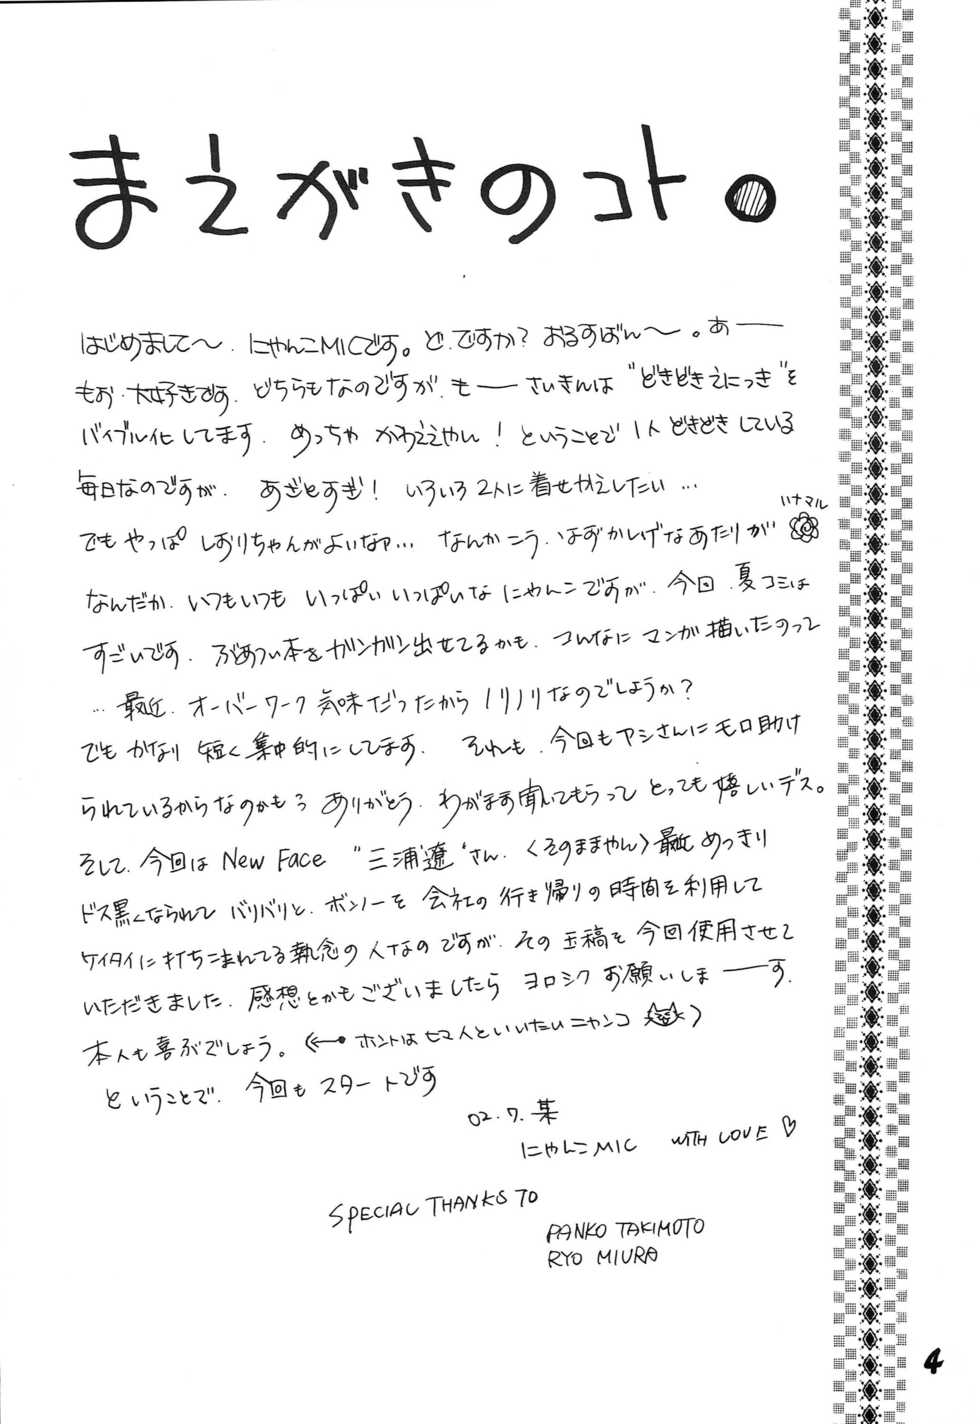 まえがきのコト。
はじめまして〜、にゃんこMICです。ど、ですか？おるすばん〜。あー
もお、大好きです。どちらもなのですが、もーさいきんは“どきどきえにっき”を
バイブル化してます。めっちゃかわええやん！ということで1人どきどきしている
毎日なのですが、あざとすぎ！いろいろ2人に着せかえしたい…
ハナマル
でもやっぱしおりちゃんがよいなァ…なんかこう、はずかしげなあたりが
なんだか、いつもいつもいっぱいいっぱいなにゃんこですが、今回、夏コミは
すごいです。ぶあつい本をガンガン出せてるかも、こんなにマンガ描いたのって
…最近、オーバーワーク気味だったからノリノリなのでしょうか？
でもかなり短く集中的にしてます。それも、今回もアシさんにモロ助け
られているからなのかもろありがとう、わがまま聞いてもらってとっても嬉しいデス。
そして、今回はNew Face “三浦遼”さん、〈そのままやん〉最近めっきり
ドス黒くなられてバリバリと、ボンノーを会社の行き帰りの時間を利用して
ケイタイに打ちこまれてる執念の人なのですが、その玉稿を今回使用させて
いただきました、感想とかもございましたらヨロシクお願いしまーす。
本人も喜ぶでしょう。（←ホントはヒマ人といいたいニャンコ）
ということで、今回もスタートです
02.7.某
にゃんこMIC WITH LOVE♡
SPECIAL THANKS TO
PANKO TAKIMOTO
RYO MIURA
4